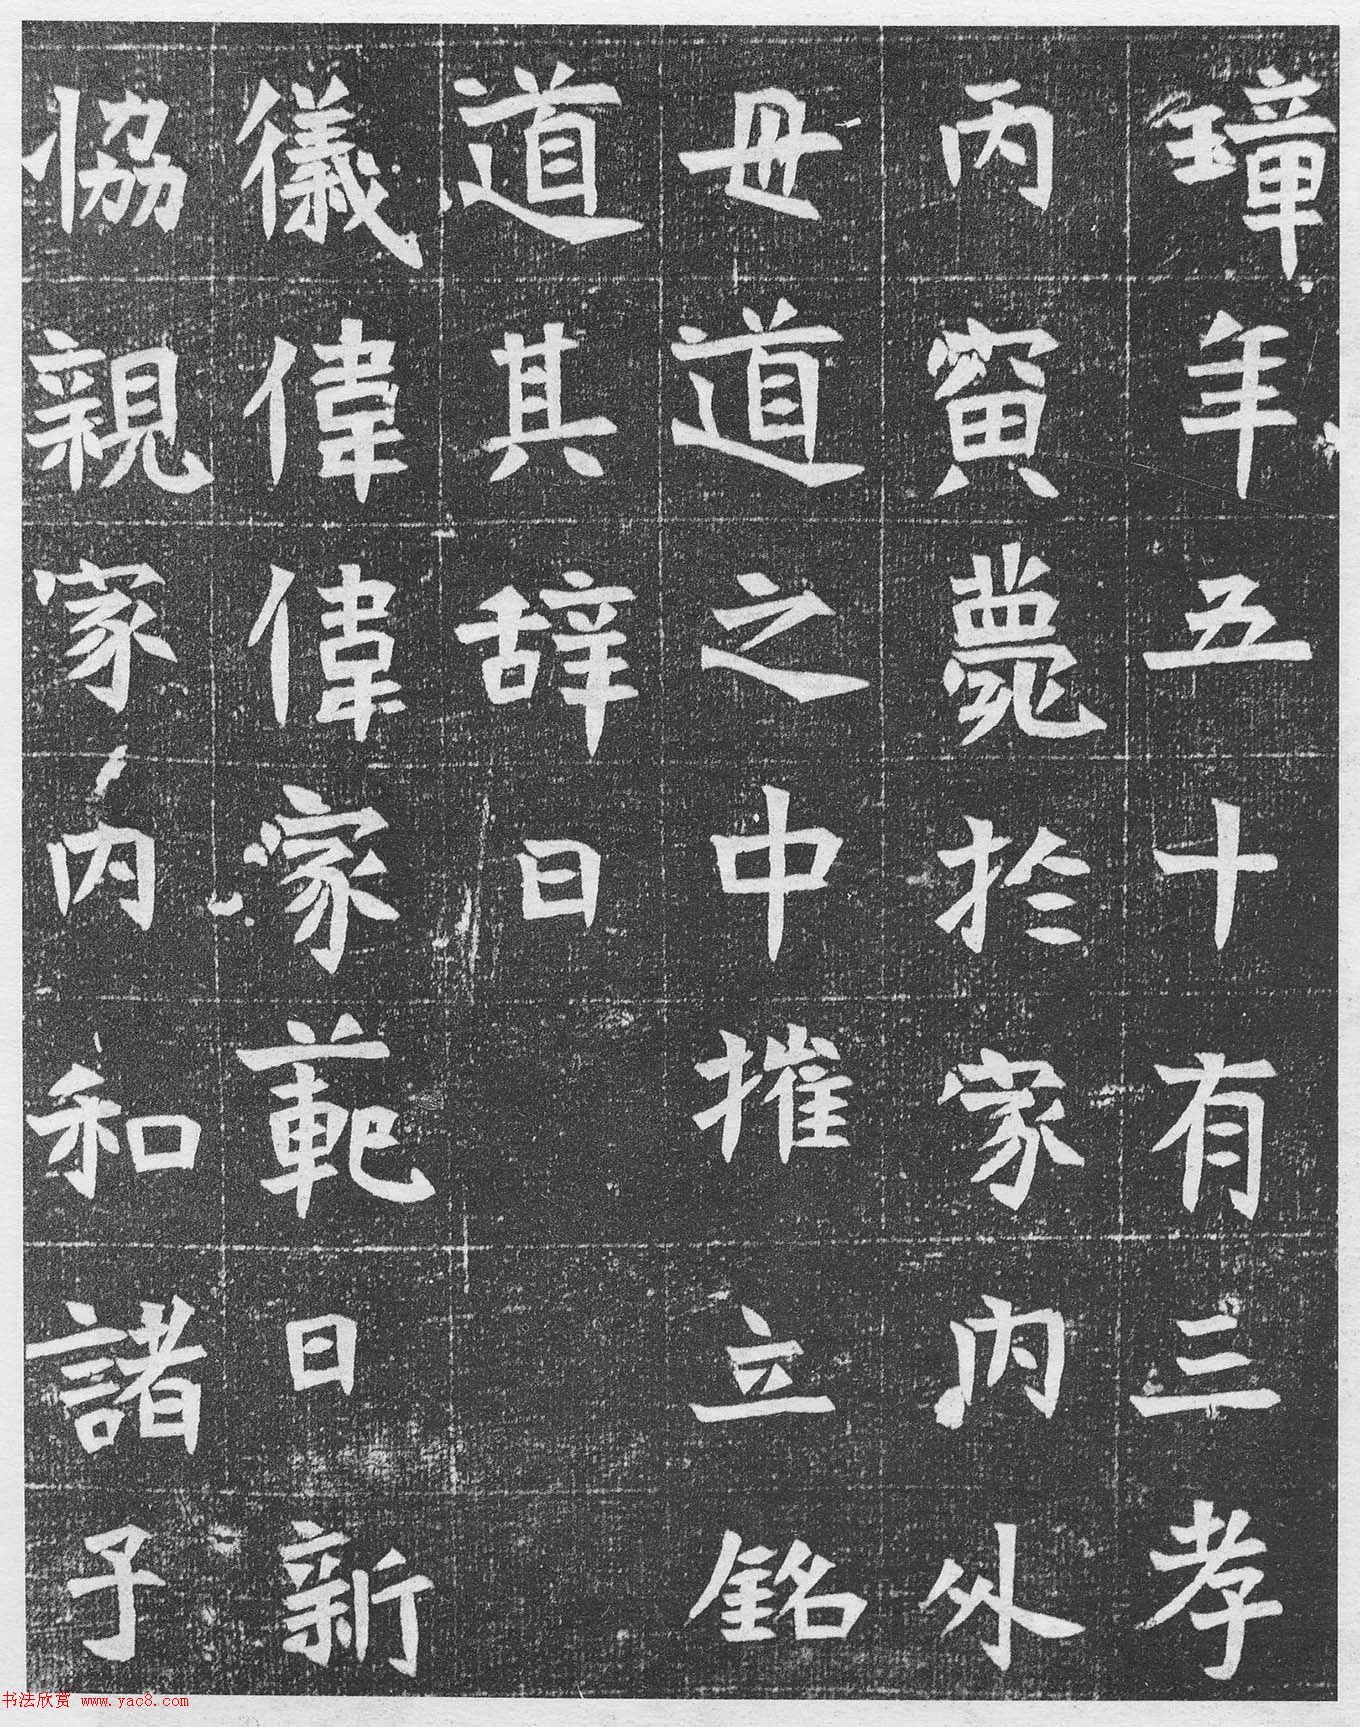 璋年五十有三孝
丙寅薨於家內外
母道之中摧立銘
道其辞曰
儀偉偉家範日新
協親家內和諸子
书法欣赏 www.yac8.com